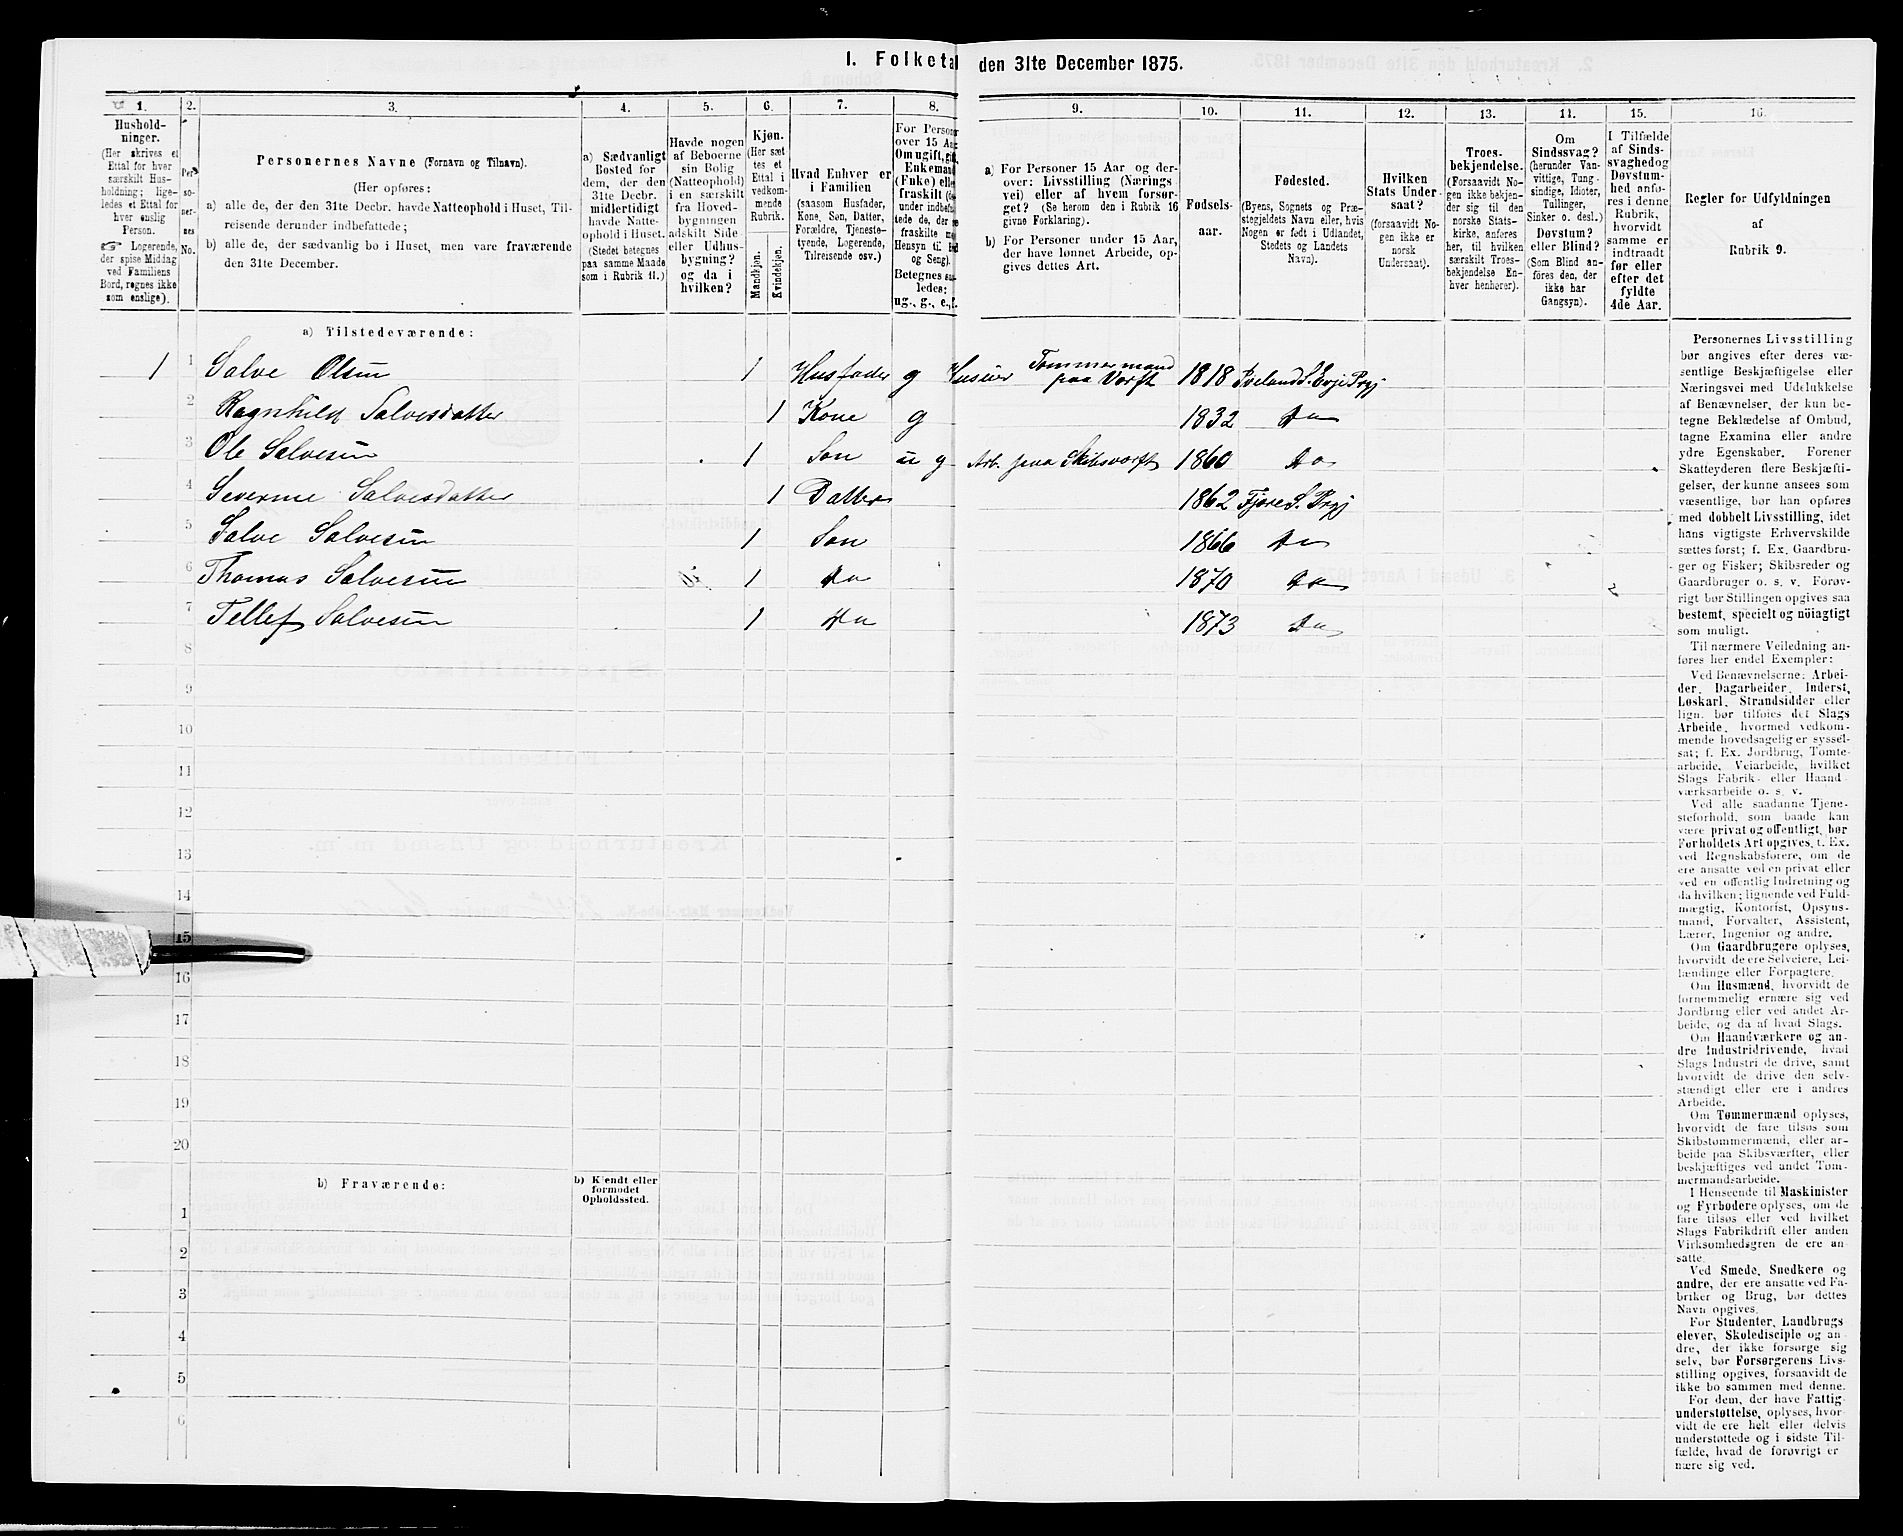 I. Folketal den 31te December 1875.
1.
2.
3.
4.
5.
6.
7.
8.
9.
10.
11.
12.
13.
14.
15.
16.
Hushold-
ninger.
(Her skrives et
Ettal for hver
særskilt Hus-
holdning; lige-
ledes et Ettal for
hver enslig
Person.
☞ Logerende,
der spise Middag
ved Familiens
Bord, regnes ikke
som enslige).
Per-
so-
ner-
nes
No.
Personernes Navne (Fornavn og Tilnavn).
(Her opføres:
a) alle de, der den 31te Decbr. havde Natteophold i Huset, Til-
reisende derunder indbefattede;
b) alle de, der sædvanlig bo i Huset, men vare fraværende
den 31te December.
a) Sædvanligt
Bosted for
dem, der den
31te Decbr.
midlertidigt
havde Natte-
ophold i Huset.
(Stedet betegnes
paa samme Maade
som i Rubrik 11.)
Havde nogen
af Beboerne
sin Bolig
(Natteophold)
i en særskilt
fra Hoved-
bygningen
adskilt Side
eller Udhus-
bygning?
og da i
hvilken?
Kjøn.
(Her sæt-
tes et
Ettal i
vedkom-
mende
Rubrik.
Mandkjøn.
Kvindekjøn.
Hvad Enhver er
i Familien
(saasom Husfader,
Kone, Søn, Datter,
Forældre, Tjeneste-
tyende, Logerende,
Tilreisende osv.)
For Persone
over 15 Aar
Om ugift, gift,
Enkemand
(Enke) elle
fraskilt
under indbefat-
tede de, der
fraskilte
Hensyn til
og Seng).
Betegnes saa-
ledes:
ug., g., e., f.
a) For Personer 15 Aar og der-
over: Livsstilling (Nærings-
vei) eller af hvem forsør-
get? (Se herom den i Rubrik 16
givne Forklaring).
b) For Personer under 15 Aar,
der have lønnet Arbeide, op-
gives dettes Art.
Fødsels-
aar.
Fødested.
(Byens, Sognets og Præ-
stegjeldets Navn eller, hvis
Nogen er født i Udlandet,
Stedets og Landets
Navn).
Hvilken
Stats Under-
saat?
(forsaavidt No-
gen ikke er
norsk
Undersaat).
Troes-
bekjendelse.
(Forsaavidt No-
gen ikke bekjen-
der sig til den
norske Stats-
kirke, anføres
her, til hvilken
særskilt Troes-
bekjendelse En-
hver henhører).
Om
Sindssvag?
(herunder Van-
vittige, Tung-
sindige, Idioter,
Tullinger,
Sinker o. desl.)
Døvstum?
eller Blind?
(Som Blind an-
føres den, der
ikke har
Gangsyn).
I Tilfælde
af Sinds-
svaghedog
Døvstum-
hed anfø-
res i denne
Rubrik,
hvorvidt
samme er
indtraadt
før eller
efter det
fyldte
4de Aar.
Regler for Udfyldningen
af
Rubrik 9.
a) Tilstedeværende:
1 1 Salve Olsen 1 Husfader g Husier Tømmermand paa Værft 1818 Iveland S. Evje Prgj
2 Ragnhild Salvesdatter 1 Kone g 1832 Do
3 Ole Salvesen 1 Søn ug Arb. paa Skibsværft 1860 Do
4 Severine Salvesdatter 1 Datter 1862 Fjære S. Prgj
5 Salve Salvesen 1 Søn 1866 Do
6 Thomas Salvesen 1 Do 1870 Do
7 Tellef Salvesen 1 Do 1873 Do
8
9
10
11
12
13
14
15
16
17
18
19
20
b) Fraværende:
b) Kjendt eller
formodet
Opholdssted.
1
2
3
4
5
6
Personernes Livsstilling
bør angives efter deres væ-
sentlige Beskjæftigelse eller
Næringsvei med Udelukkelse
af Benævnelser, der kun be-
tegne Beklædelse af Ombud,
tagne Examina eller andre
ydre Egenskaber. Forener
Skatteyderen flere Beskjæfti-
gelser, der kunne ansees som
væsentlige, bør han opføres
med dobbelt Livsstilling, idet
hans vigtigste Erhvervskilde
sættes først; f. Ex. Gaardbru-
ger og Fisker; Skibsreder og
Gaardbruger o. s. v. Forøv-
rigt bør Stillingen opgives saa
bestemt, specielt og nöiagtigt
som muligt.
Til nærmere Veiledning an-
føres her endel Exempler:
Ved Benævnelserne: Arbei-
der, Dagarbeider, Inderst,
Løskarl, Strandsidder eller
lign. bør tilføies det Slags
Arbeide, hvormed vedkom-
mende hovedsagelig er syssel-
sat; f. Ex. Jordbrug, Tomte-
arbeide, Veiarbeide, hvilket
Slags Fabrik- eller Haand-
værksarbeide o. s. v.
Ved alle saadanne Tjene-
steforhold, som baade kan
være privat og offentligt, bør
Forholdets Art opgives, f. Ex.
ved Regnskabsførere, om de
ere ansatte ved en privat eller
ved en offentlig Indretning og
da hvilken; lignende ved Fuld-
mægtig, Kontorist, Opsyns-
mand, Forvalter, Assistent,
Lærer, Ingeniør og andre.
Om Gaardbrugere oplyses,
hvorvidt de ere Selveiere, Lei-
lændinge eller Forpagtere.
Om Husmænd, hvorvidt de
fornemmelig ernære sig ved
Jordbrug eller ved andet Ar-
beide, og da af hvad Slags.
Om Haandværkere og an-
dre Industridrivende, hvad
Slags Industri de drive, samt
hvorvidt de drive den selv-
stændigt eller ere i andres
Arbeide.
Om Tømmermænd oplyses,
hvorvidt de fare tilsøs som
Skibstømmermænd, eller ar-
beide paa Skibsværfter, eller
beskjæftiges ved andet Tøm-
mermandsarbeide.
I Henseende til Maskinister
og Fyrbødere oplyses, om de
fare tilsøs eller ved hvilket
Slags Fabrikdrift eller anden
Virksomhedsgren de ere an-
satte.
Ved Smede, Snedkere og
andre, der ere ansatte ved Fa-
briker og Brug, bør dettes
Navn opgives.
For Studenter, Landbrugs-
elever, Skoledisciple og an-
dre, der ikke forsørge sig
selv, bør Forsørgerens Livs-
stilling opgives, forsaavidt de
ikke bo sammen med denne.
For dem, der have Fattig-
understøttelse, oplyses, hvor-
vidt de ere helt eller delvis
understøttede og i sidste Til-
fælde, hvad de forøvrigt er-
nære sig ved.